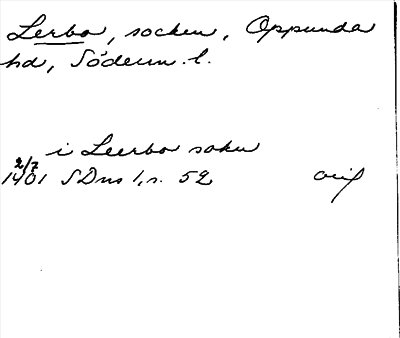 Lerbo, socken, Oppunda
hd, Söderm. l.
i Leerbo sokn
2/7
1401 SDns 1, s. 52 orig